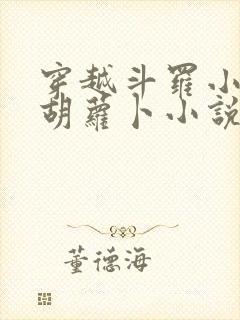 穿越斗羅小
胡蘿卜小說
董德海